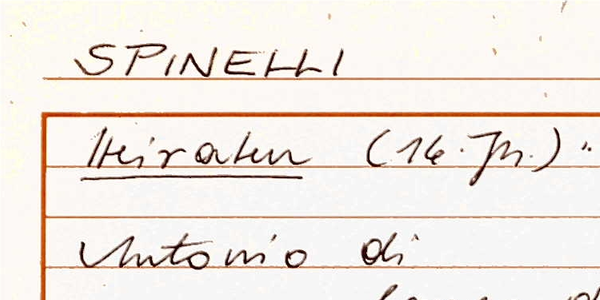 SPINELLI
Heiraten (16. Jh.) "
Antonio di